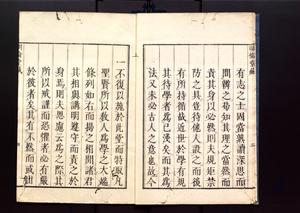 有志之士固當熟讀深思而
問辨之苟知其理之當然而
責其身以必然則夫規矩禁
防之具豈待他人設之而後
有所持循哉近世於學有規
其待學者爲已淺矣而其爲
法又未必古人之意也故今
不復以施於此堂而特取凡
聖賢所以教人爲學之大端
條列如右而揭之楣間諸君
其相與講明遵守而責之於
身焉則夫思慮云爲之際其
所以戒謹而恐懼者必有嚴
於彼者矣其有不然而或出